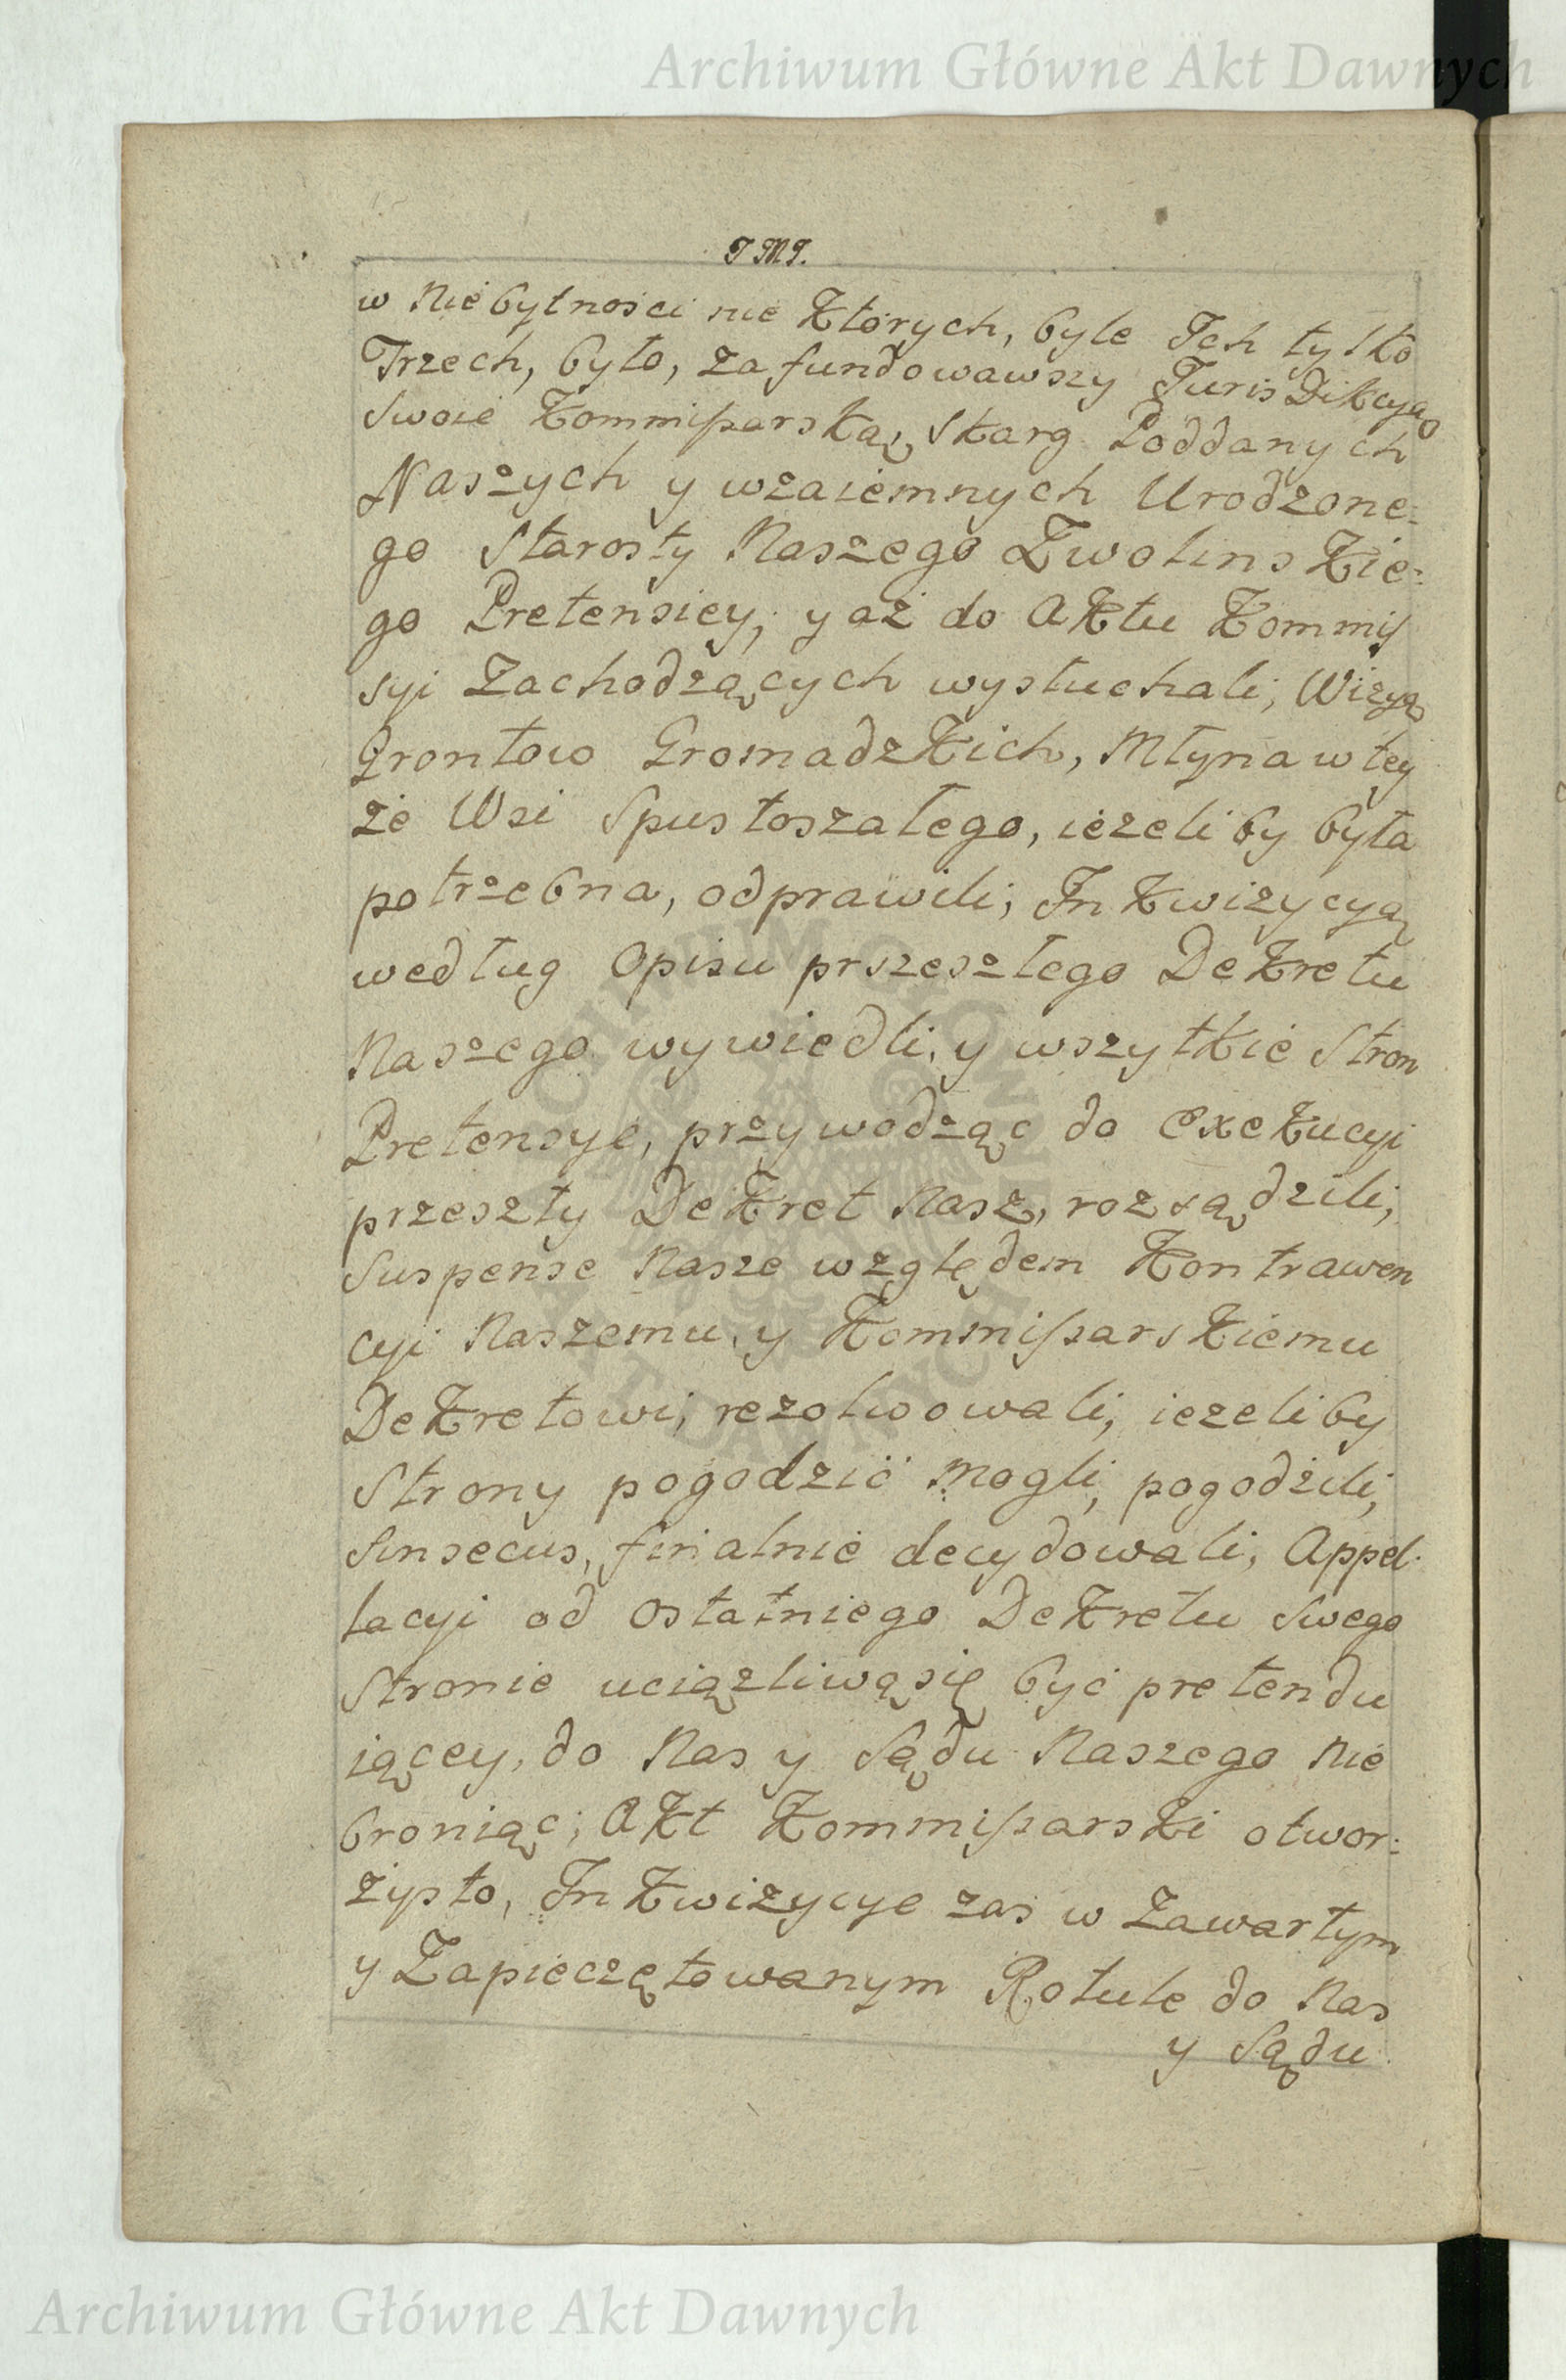 Archiwum Główne Akt Dawnych
J M J.
w Niebytnosci nie Ktorych, byle Ich tylko
Trzech, było, zafundowawszy Juris Dikcyą
Swoie Kommissarską, Skarg Poddanych
Naszych y wzaiemnych Urodzone-
go Starosty Naszego Zwolinskie-
go Pretensiey, y aż do Aktu Kommis
syi Zachodzących wysłuchali; Wizyą
Grontow Gromadzkich, Młyna w tey
że Wsi Spustoszałego, ieżeliby była
potrzebna, odprawili; Inkwizycyą
według Opisu prszeszłego Dekretu
Naszego wywiedli, y wszytkie Stron
Pretensye, przywodząc do Exekucyi
przeszły Dekret Nasz, rozsądzili,
Suspense Nasze względem Kontrawen
cyi Naszemu, y Kommissarskiemu
Dekretowi, rezolwowali, ieżeliby
Strony pogodzić mogli, pogodzili,
Sinsecus, finalnie decydowali, Appel-
lacyi od Ostatniego Dekretu Swego
Stronie uciążliwą się być pretendu
iącey, do Nas y Sądu Naszego Nie
broniąc; Akt Kommissarski otwor-
zysto, Inkwizycye zas w Zawartym
y Zapieczętowanym Rotule do Nas
y Sądu
ARCHIWUM GŁÓWNE
AKT DAWNYCH
Archiwum Główne Akt Dawnych